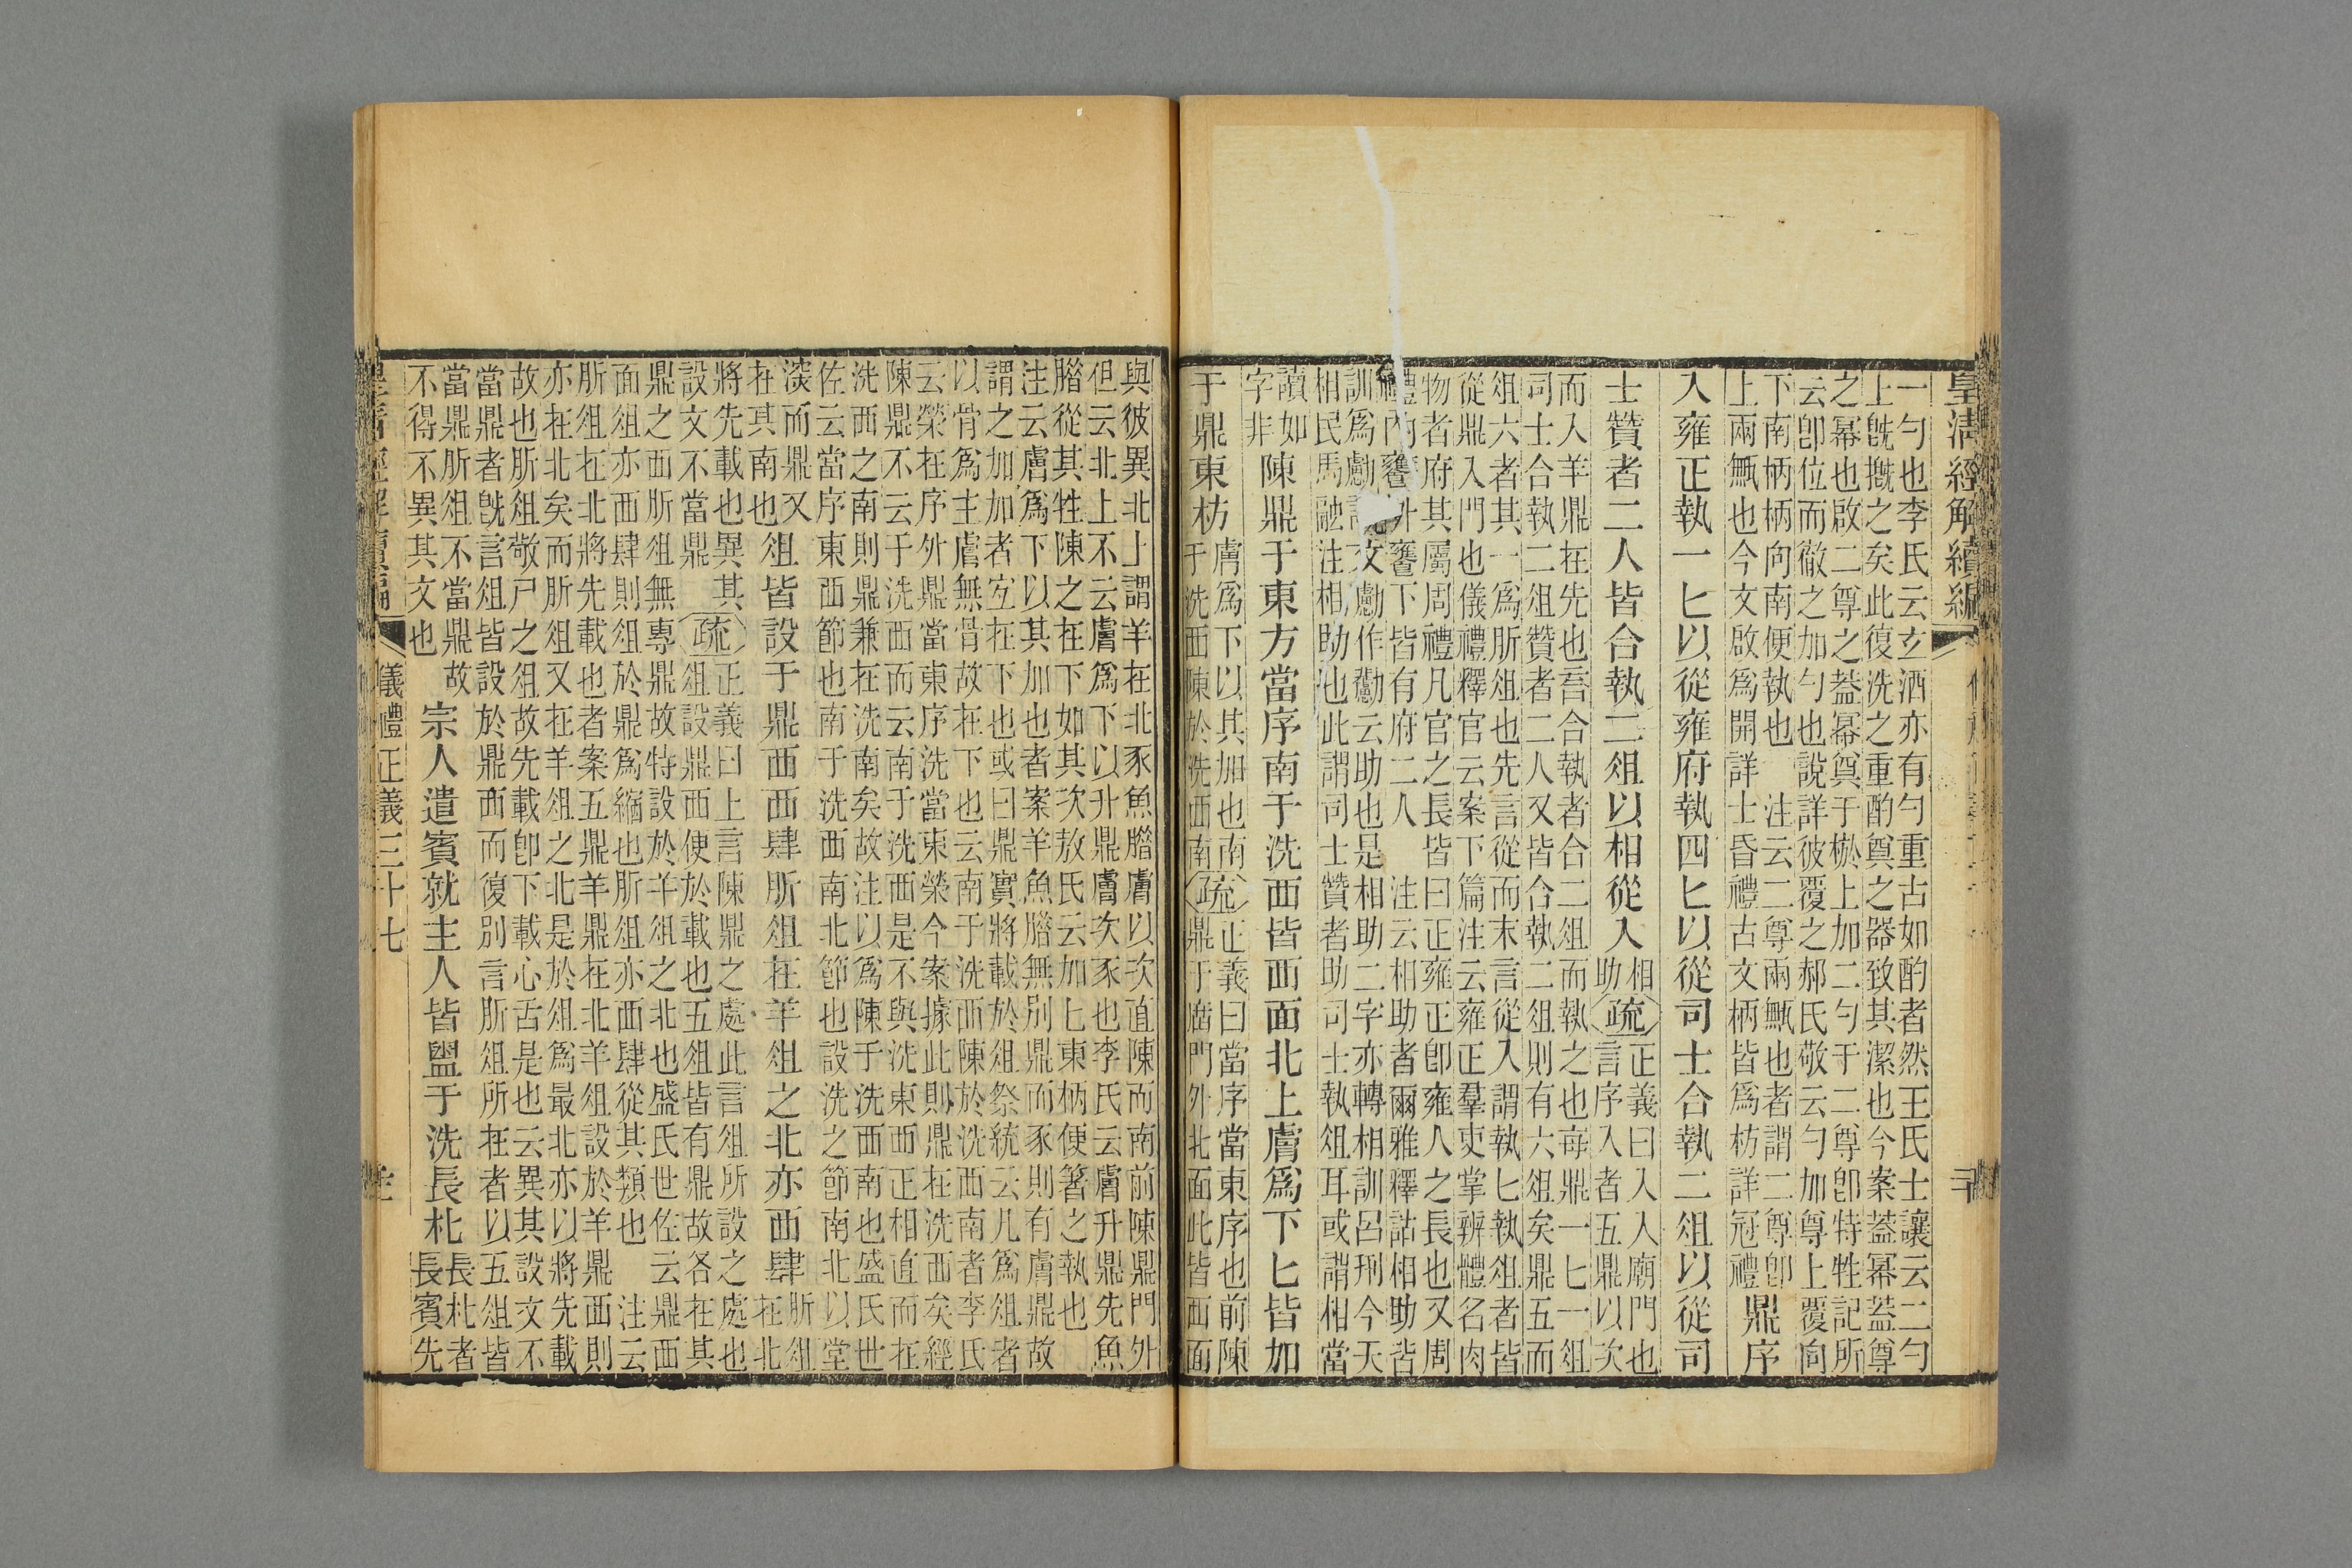 皇清經解續編
一勺也李氏云玄酒亦有勺重古如酌者然王氏士讓云二勺
上旣摡之矣此復洗之重酌奠之器致其潔也今案蓋冪蓋尊
之冪也啟二尊之蓋冪奠于棜上加二勺于二尊卽特牲記所
云卽位而徹之加勺也說詳彼覆之郝氏敬云勺加尊上覆向
下南柄柄向南便執也　注云二尊兩甒也者謂二尊卽
上兩甒也今文啟爲開詳士昏禮古文柄皆爲枋詳冠禮
鼎序
入雍正執一匕以從雍府執四匕以從司士合執二俎以從司
士贊者二人皆合執二俎以相從入
相
助
疏
正義曰入入廟門也
言序入者五鼎以次
而入羊鼎在先也吾合執者合二俎而執之也每鼎一匕一俎
司士合執二俎贊者二人又皆合執二俎則有六俎矣鼎五而
俎六者其一爲肵俎也先言從而末言從入謂執匕執俎者皆
從鼎入門也儀禮釋官云案下篇注云雍正羣吏掌辨體名肉
物者府其屬周禮凡官之長皆曰正雍正卽雍人之長也又周
禮內饔外饔下皆有府二人　注云相助者爾雅釋詁相助皆
訓爲勴文勴作勸云助也是相助二字亦轉相訓呂刑今天
相民馬融注相助也此謂司士贊者助司士執俎耳或謂相當
讀如
字非
陳鼎于東方當序南于洗西皆西面北上膚爲下匕皆加
于鼎東枋
膚爲下以其加也南
于洗西陳於洗西南
疏
正義曰當序當東序也前陳
鼎于廟門外北面此皆西面
與彼異北上謂羊在北豕魚腊膚以次直陳而南前陳鼎門外
但云北上不云膚爲下以升鼎膚次豕也李氏云膚升鼎先魚
腊從其牲陳之在下如其次敖氏云加匕東柄便箸之執也
注云膚爲下以其加也者案羊魚腊無別鼎而豕則有膚鼎故
謂之加加者宐在下也或曰鼎實將載於俎祭統云凡爲俎者
以骨爲主膚無骨故在下也云南于洗西陳於洗西南者李氏
云榮在序外鼎當東序洗當東榮今案據此則鼎在洗西矣經
陳鼎不云于洗西而云南于洗西是不與洗東西正相直而在
洗西之南則鼎兼在洗南矣故注以爲陳于洗西南也盛氏世
佐云當序東西節也南于洗西南北節也設洗之節南北以堂
深而鼎又
在其南也
俎皆設于鼎西西肆肵俎在羊俎之北亦西肆
肵俎
在北
將先載也異其
設文不當鼎
疏
正義曰上言陳鼎之處此言俎所設之處也
俎設鼎西便於載也五俎皆有鼎故各在其
鼎之西肵俎無專鼎故特設於羊俎之北也盛氏世佐云鼎西
面俎亦西肆則俎於鼎爲縮也肵俎亦西肆從其類也　注云
肵俎在北將先載也者案五鼎羊鼎在北羊俎設於羊鼎西則
亦在北矣而肵俎又在羊俎之北是於俎爲最北亦以將先載
故也肵俎敬尸之俎故先載卽下載心舌是也云異其設文不
當鼎者旣言俎皆設於鼎西而復別言肵俎所在者以五俎皆
當鼎肵俎不當鼎故
不得不異其文也
宗人遣賓就主人皆盥于洗長朼
長朼者
長賓先
儀禮正義三十七